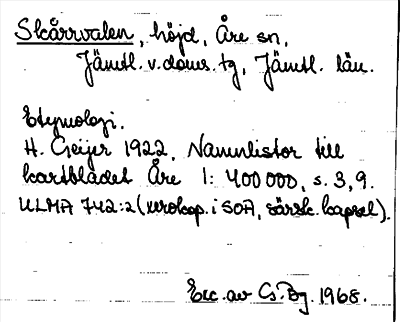 Skårrvalen, höjd, Åre sn,
Jämtl. v. doms. tg, Jämtl. län.
Etymologi.
H. Geijer 1922, Namnlistor till
kartbladet Åre 1: 400 000, s. 3, 9.
ULMA 742:2 (xerokop. i SOA, särsk. kapsel).
Exc. av G. Bg. 1968.